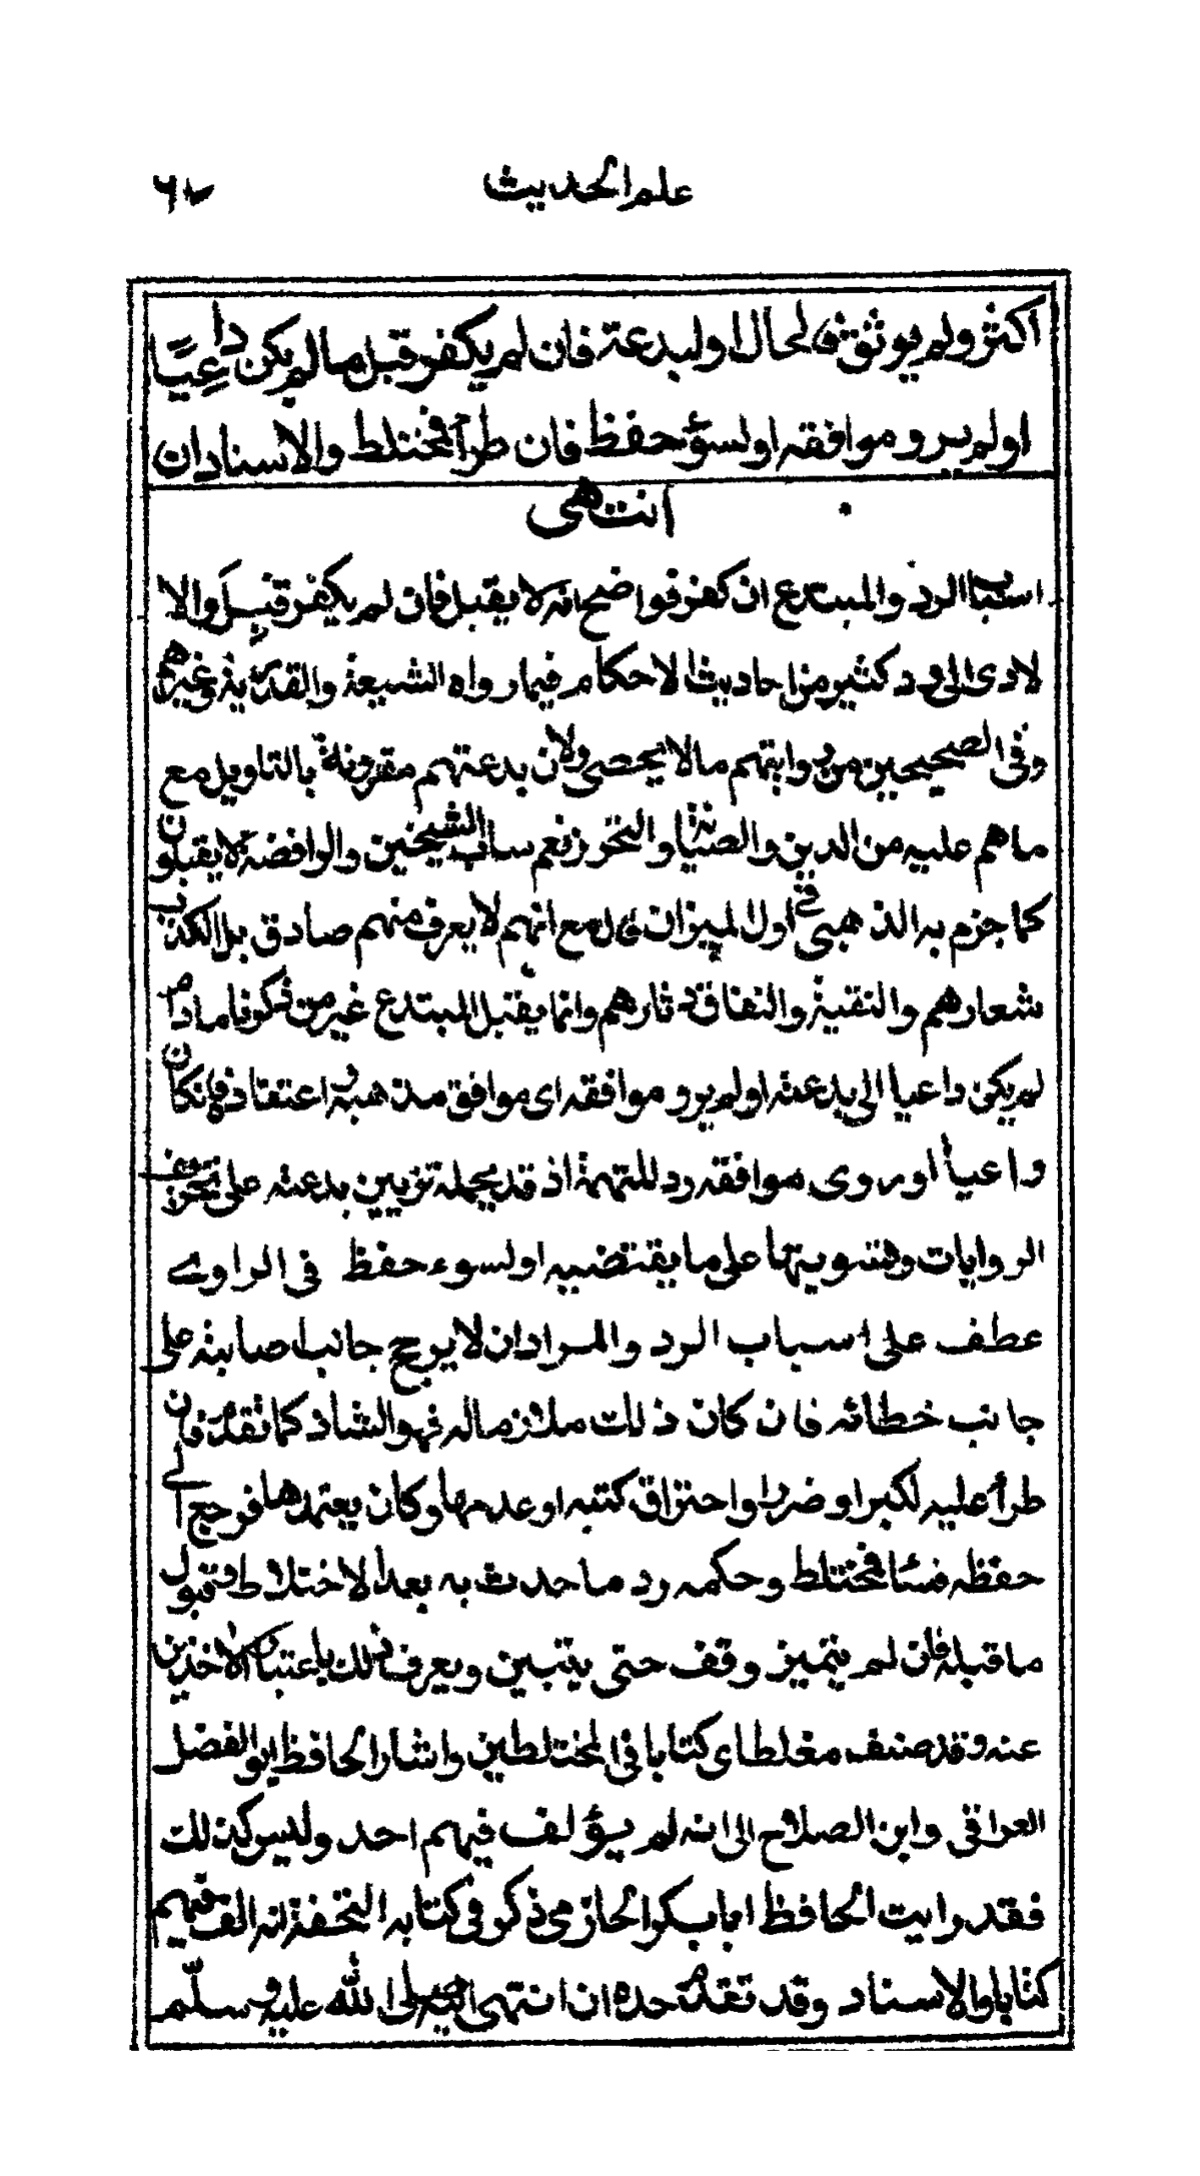 علم الحديث
٦٧
اكثر ولم يوثق فالحال او لبدعة فان لم يكفر قبل مالم يكن داعيًا
او لم يرو موافقه او لسوء حفظ فان طرأ فمختلط والاسناد ان
انتهى
اسباب الرد والمبتدع ان كفر فواضح انه لا يقبل فان لم يكفر قبل والا
لادى الى رد كثير من احاديث الاحكام فيما رواه الشيعة والقدرية وغيرهم
وفى الصحيحين من روايتهم مالا يحصى ولان بدعتهم مقرونة بالتاويل مع
ما هم عليه من الدين والصيانة والتحرز نعم ساب الشيخين والرافضة لا يقبلون
كما جزم به الذهبى فى اول الميزان قال مع انهم لا يعرف منهم صادق بل الكذب
شعارهم والتقية والنفاق دثارهم وانما يقبل المبتدع غير من ذكرنا مادام
لم يكن داعيا الى بدعته او لم يرو موافقه اى موافق مذهبه واعتقاده فان كان
داعيا او روى موافقه رد للتهمة اذ قد يحمله تزيين بدعته على تحريف
الروايات وتسويتها على ما يقتضيه او لسوء حفظ فى الراوے
عطف على اسباب الرد والمراد ان لا يرجح جانب اصابته على
جانب خطائه فان كان ذلك ملازما له فهو الشاذ كما تقدم فان
طرأ عليه لكبر او ضرر او احتراق كتبه او عدمها وكان يعتمدها فرجع الے
حفظه فساء فمختلط وحكمه رد ما حدث به بعد الاختلاط وقبول
ما قبله فان لم يتميز وقف حتى يتبين ويعرف ذلك باعتبار الاخذين
عنه وقد صنف مغلطاى كتابا فى المختلطين واشار الحافظ ابو الفضل
العراقى وابن الصلاح الى انه لم يؤلف فيهم احد وليس كذلك
فقد رايت الحافظ ابا بكر الحازمى ذكر فى كتابه التحفة انه الف فيهم
كتابا والاسناد وقد تقدم حده ان انتهى اليه صلى الله عليه وسلم